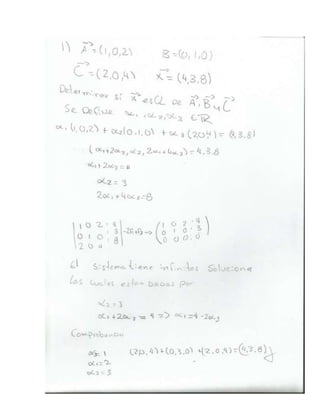 1) A=(1,0,2) B=(0,1,0)
C=(2,0,4) X=(4,3,8)
Determinar si X es CL DE A, B y C
Se Define α1, α2, α3 ∈ R
α1(1,0,2) + α2(0,1,0) + α3(2,0,4) = (4,3,8)
(α1+2α3, α2, 2α1+4α3) = 4,3,8
α1+2α3=4
α2=3
2α1+4α3=8
1 0 2 : 4 1 0 2 : 4
0 1 0 : 3 → 0 1 0 : 3
2 0 4 : 8 0 0 0 : 0
El sistema tiene infinitas Soluciones
Los cuales estan dadas por
α2=3
α1+2α3=4 => α1=4-2α3
Comprobando
α3=1 (2,0,4)+(0,3,0)+(2,0,4)=(4,3,8)
α1=2
α2=3